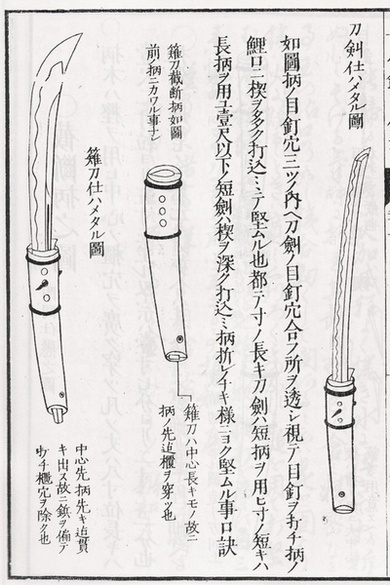 刀劍仕ハメタル圖
如圖柄ノ目釘穴三ツノ内ヘ刀劍ノ目釘穴合フ所ヲ透シ視テ目釘ヲ打チ柄ノ
鯉口ニ楔ヲ多ク打込ミテ堅ムル也都テ寸ノ長キ刀劍ハ短柄ヲ用ヒ寸ノ短キハ
長柄ヲ用ユ壹尺以下ノ短劍ハ楔ヲ深ク打込ミ柄折レナキ樣ニヨク堅ムル事口訣
薙刀截断柄如圖
前柄ニカワル事ナシ
薙刀ハ中心長キモノ故ニ
柄ノ先迠櫃ヲ穿ツ也
薙刀仕ハメタル圖
中心先柄先キ迠貫
キ出ス故ニ鈑ヲ備テ
打チ櫃穴ヲ除ク也